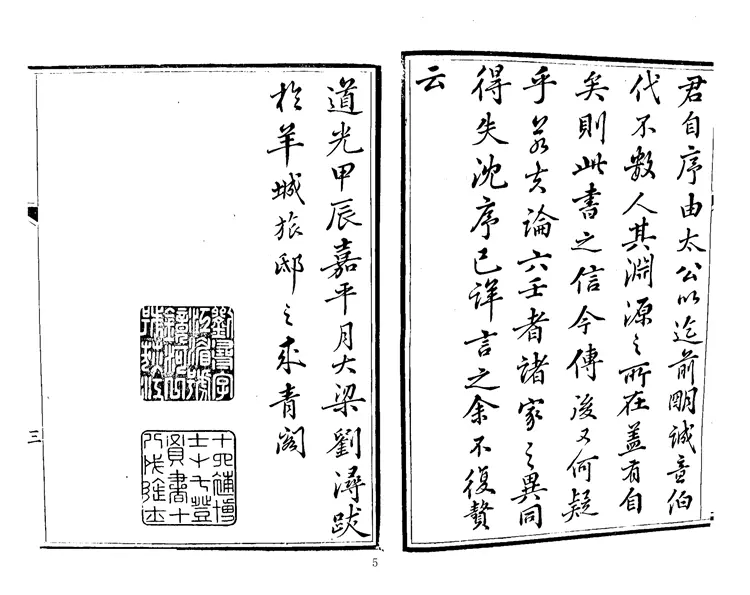 君自序由太公以迄前明誠意伯
代不數人其淵源之所在蓋有自
矣則此書之信今傳後又何疑
乎若夫論六壬者諸家之異同
得失沈序已詳言之余不復贅
云
道光甲辰嘉平月大梁劉潯跋
於羊城旅邸之來青閣
三
5